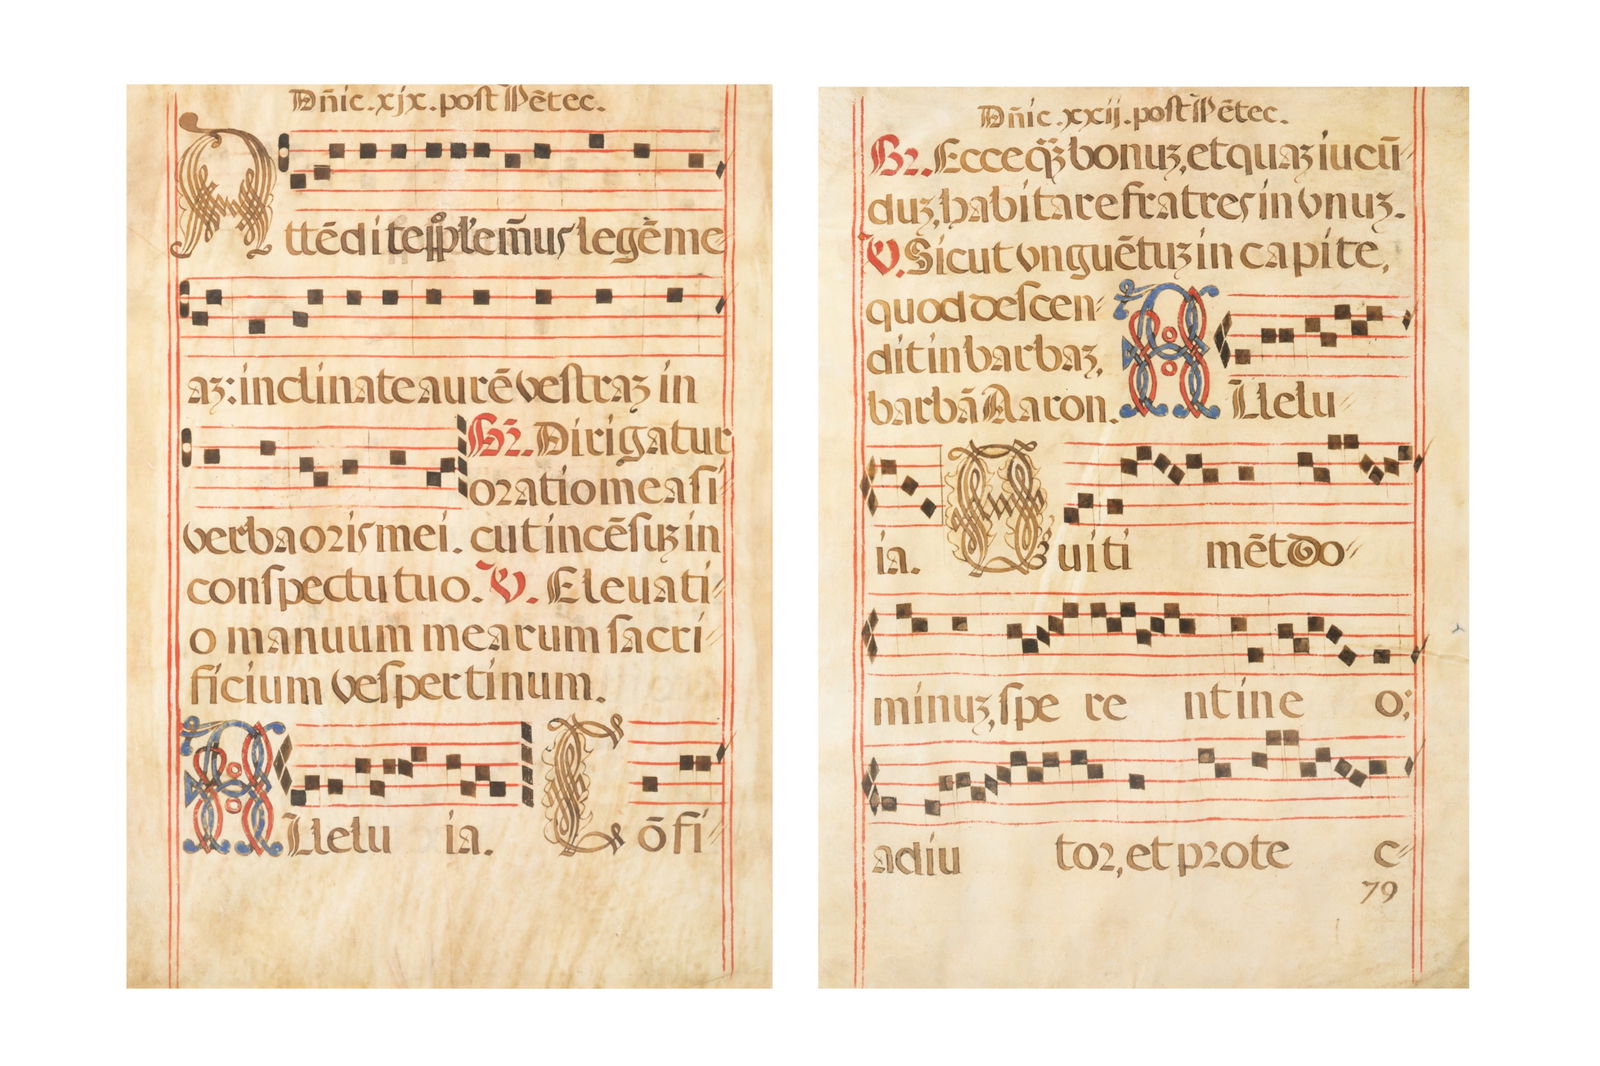 Dñic. xjx. post Pẽtec.
Attẽdite pp̃le m̃us legẽ me
aʒ: inclinate aurẽ vestraʒ in
R. Dirigatur
oratio mea si
verba oris mei. cut incẽsuʒ in
conspectu tuo. V. Eleuati
o manuum mearum sacri
ficium vespertinum.
ALlelu ia. Cõfi
Dñic. xxij. post Pẽtec.
R. Ecce q̃ʒ bonuʒ, et quaʒ iucũ
duʒ, habitare fratres in vnuʒ.
V. Sicut vnguẽtuʒ in capite,
quod descen
dit in barbaʒ,
barbã Aaron. ALlelu
ia. Quiti mẽt do
minuʒ, spe re nt in e o;
adiu tor, et prote c
79